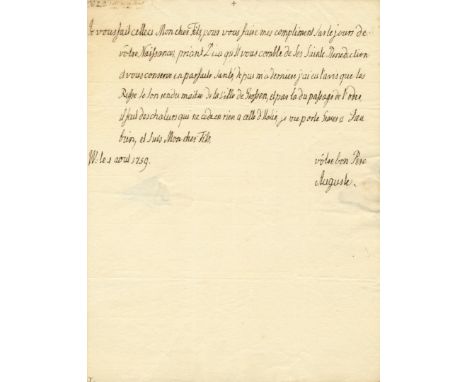 +
Je vous fait celle cy Mon cher Fils, pour vous faire mes compliment sur le jours de
vôtre Naissance, priant Dieu qu'il vous comble de ses Sainte Benediction
et vous conserve en parfaite Santé, depuis ma derniere j'ai eu l'avis que les
Russe se son rendu maitre de la Ville de Crossen, et par la du passage de l'oder,
il fait des chaleurs qui ne cede en rien a celle d'Italie, je me porte Graces a Dieu
bien, et suis Mon cher Fils
W. le 1 aout 1759. vôtre bon Pere
Auguste.